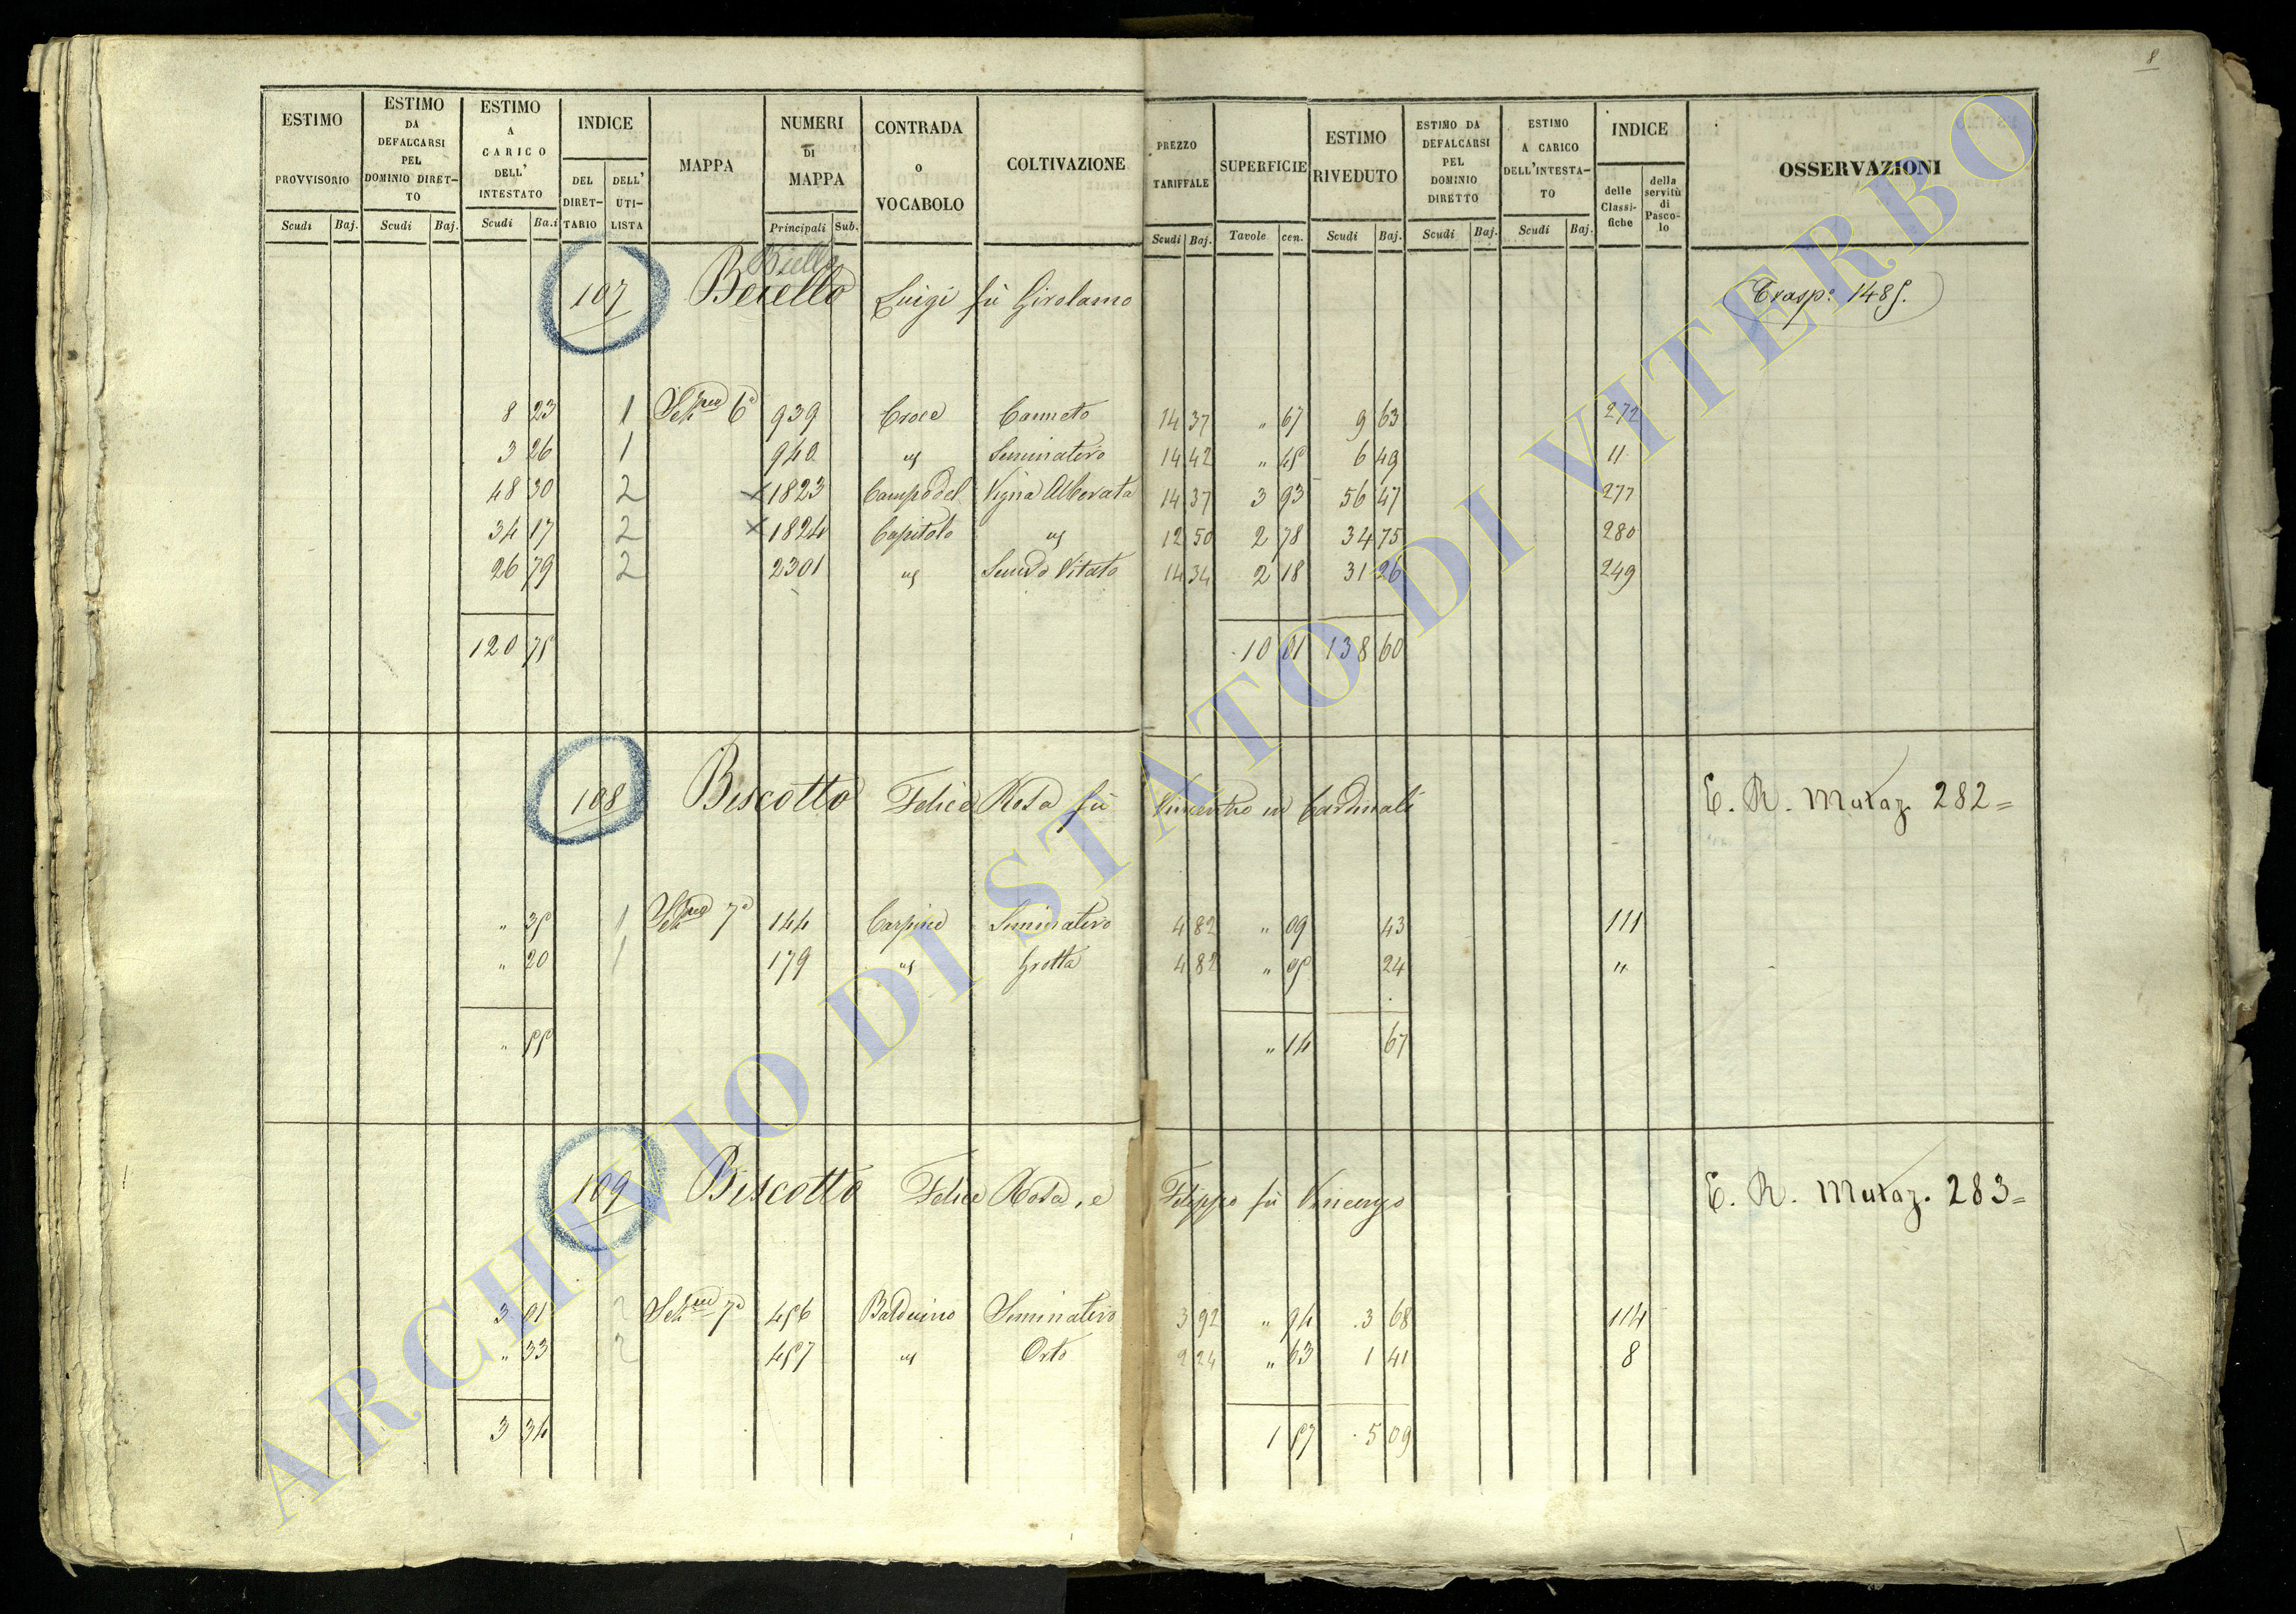 8
ESTIMO PROVVISORIO
ESTIMO DA DEFALCARSI PEL DOMINIO DIRET-TO
ESTIMO A CARICO DELL' INTESTATO
INDICE
DEL DIRET-TARIO
DELL' UTI-LISTA
MAPPA
NUMERI DI MAPPA
CONTRADA o VOCABOLO
COLTIVAZIONE
PREZZO TARIFFALE
SUPERFICIE
ESTIMO RIVEDUTO
ESTIMO DA DEFALCARSI PEL DOMINIO DIRETTO
ESTIMO A CARICO DELL'INTESTA-TO
INDICE
delle Classi-fiche
della servitù di Pasco-lo
OSSERVAZIONI
Scudi Baj. Scudi Baj. Scudi Ba.i Principali Sub. Scudi Baj. Tavole cen. Scudi Baj. Scudi Baj. Scudi Baj.
Biello
107 Luigi fù Girolamo Trasp.º 1485.
8 23 1 Sez.ne 6ª 939 Croce Canneto 14 37 " 67 9 63 272
3 26 1 940 us Seminativo 14 42 " 45 6 49 11
48 30 2 x 1823 Campo del Vigna Alberata 14 37 3 93 56 47 277
34 17 2 x 1824 Capitolo us 12 50 2 78 34 75 280
26 79 2 2301 us Semvo Vitato 14 34 2 18 31 26 249
120 75 10 01 138 60
108 Biscotto Felice Rosa fù Vincenzo in Cardinali E. R. Mutaz. 282=
" 35 1 Sez.ne 7ª 144 Carpine Seminativo 4 82 " 09 43 111
" 20 1 179 us Grotta 4 82 " 05 24 "
" 55 " 14 67
109 Biscotto Felice Rosa, e Filippo fù Vincenzo E. R. Mutaz. 283=
3 01 2 Sez.ne 7ª 456 Balduino Seminativo 3 92 " 94 3 68 114
" 33 2 457 us Orto 2 24 " 63 1 41 8
3 34 1 57 5 09
ARCHIVIO DI STATO DI VITERBO